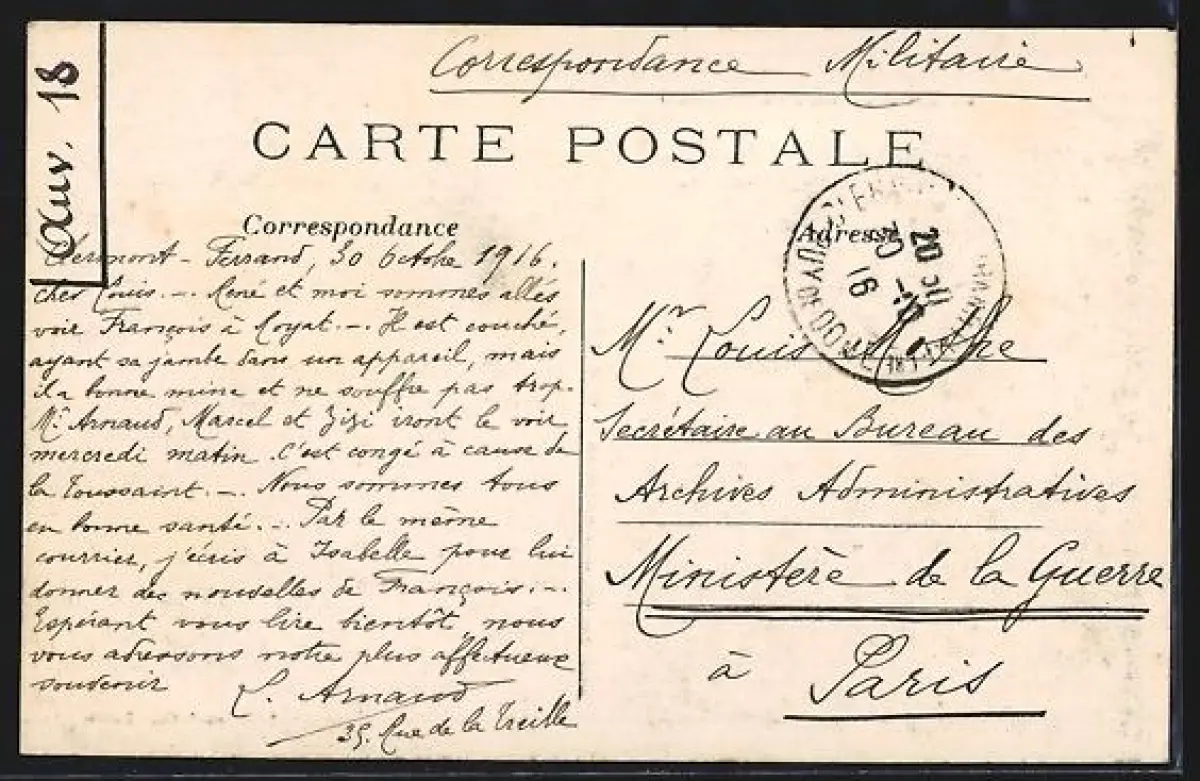 Auv. 18
Correspondance Militaire
CARTE POSTALE
Correspondance
Clermont-Ferrand, 30 Octobre 1916.
cher Louis. -. René et moi sommes allés
voir François à Royat. -. Il est couché,
ayant sa jambe dans un appareil, mais
il a bonne mine et ne souffre pas trop.
Mr. Arnaud, Marcel et Zizi iront le voir
mercredi matin. C'est congé à cause de
la Toussaint. -. Nous sommes tous
en bonne santé. -. Par le même
courrier, j'écris à Isabelle pour lui
donner des nouvelles de François. -.
Espérant vous lire bientôt, nous
vous adressons notre plus affectueux
souvenir
L. Arnaud
35, Rue de la Treille
Adresse
20 30
30 - 10
16
PUY DE DOME
Mr. Louis
Secrétaire au Bureau des
Archives Administratives
Ministère de la Guerre
à Paris